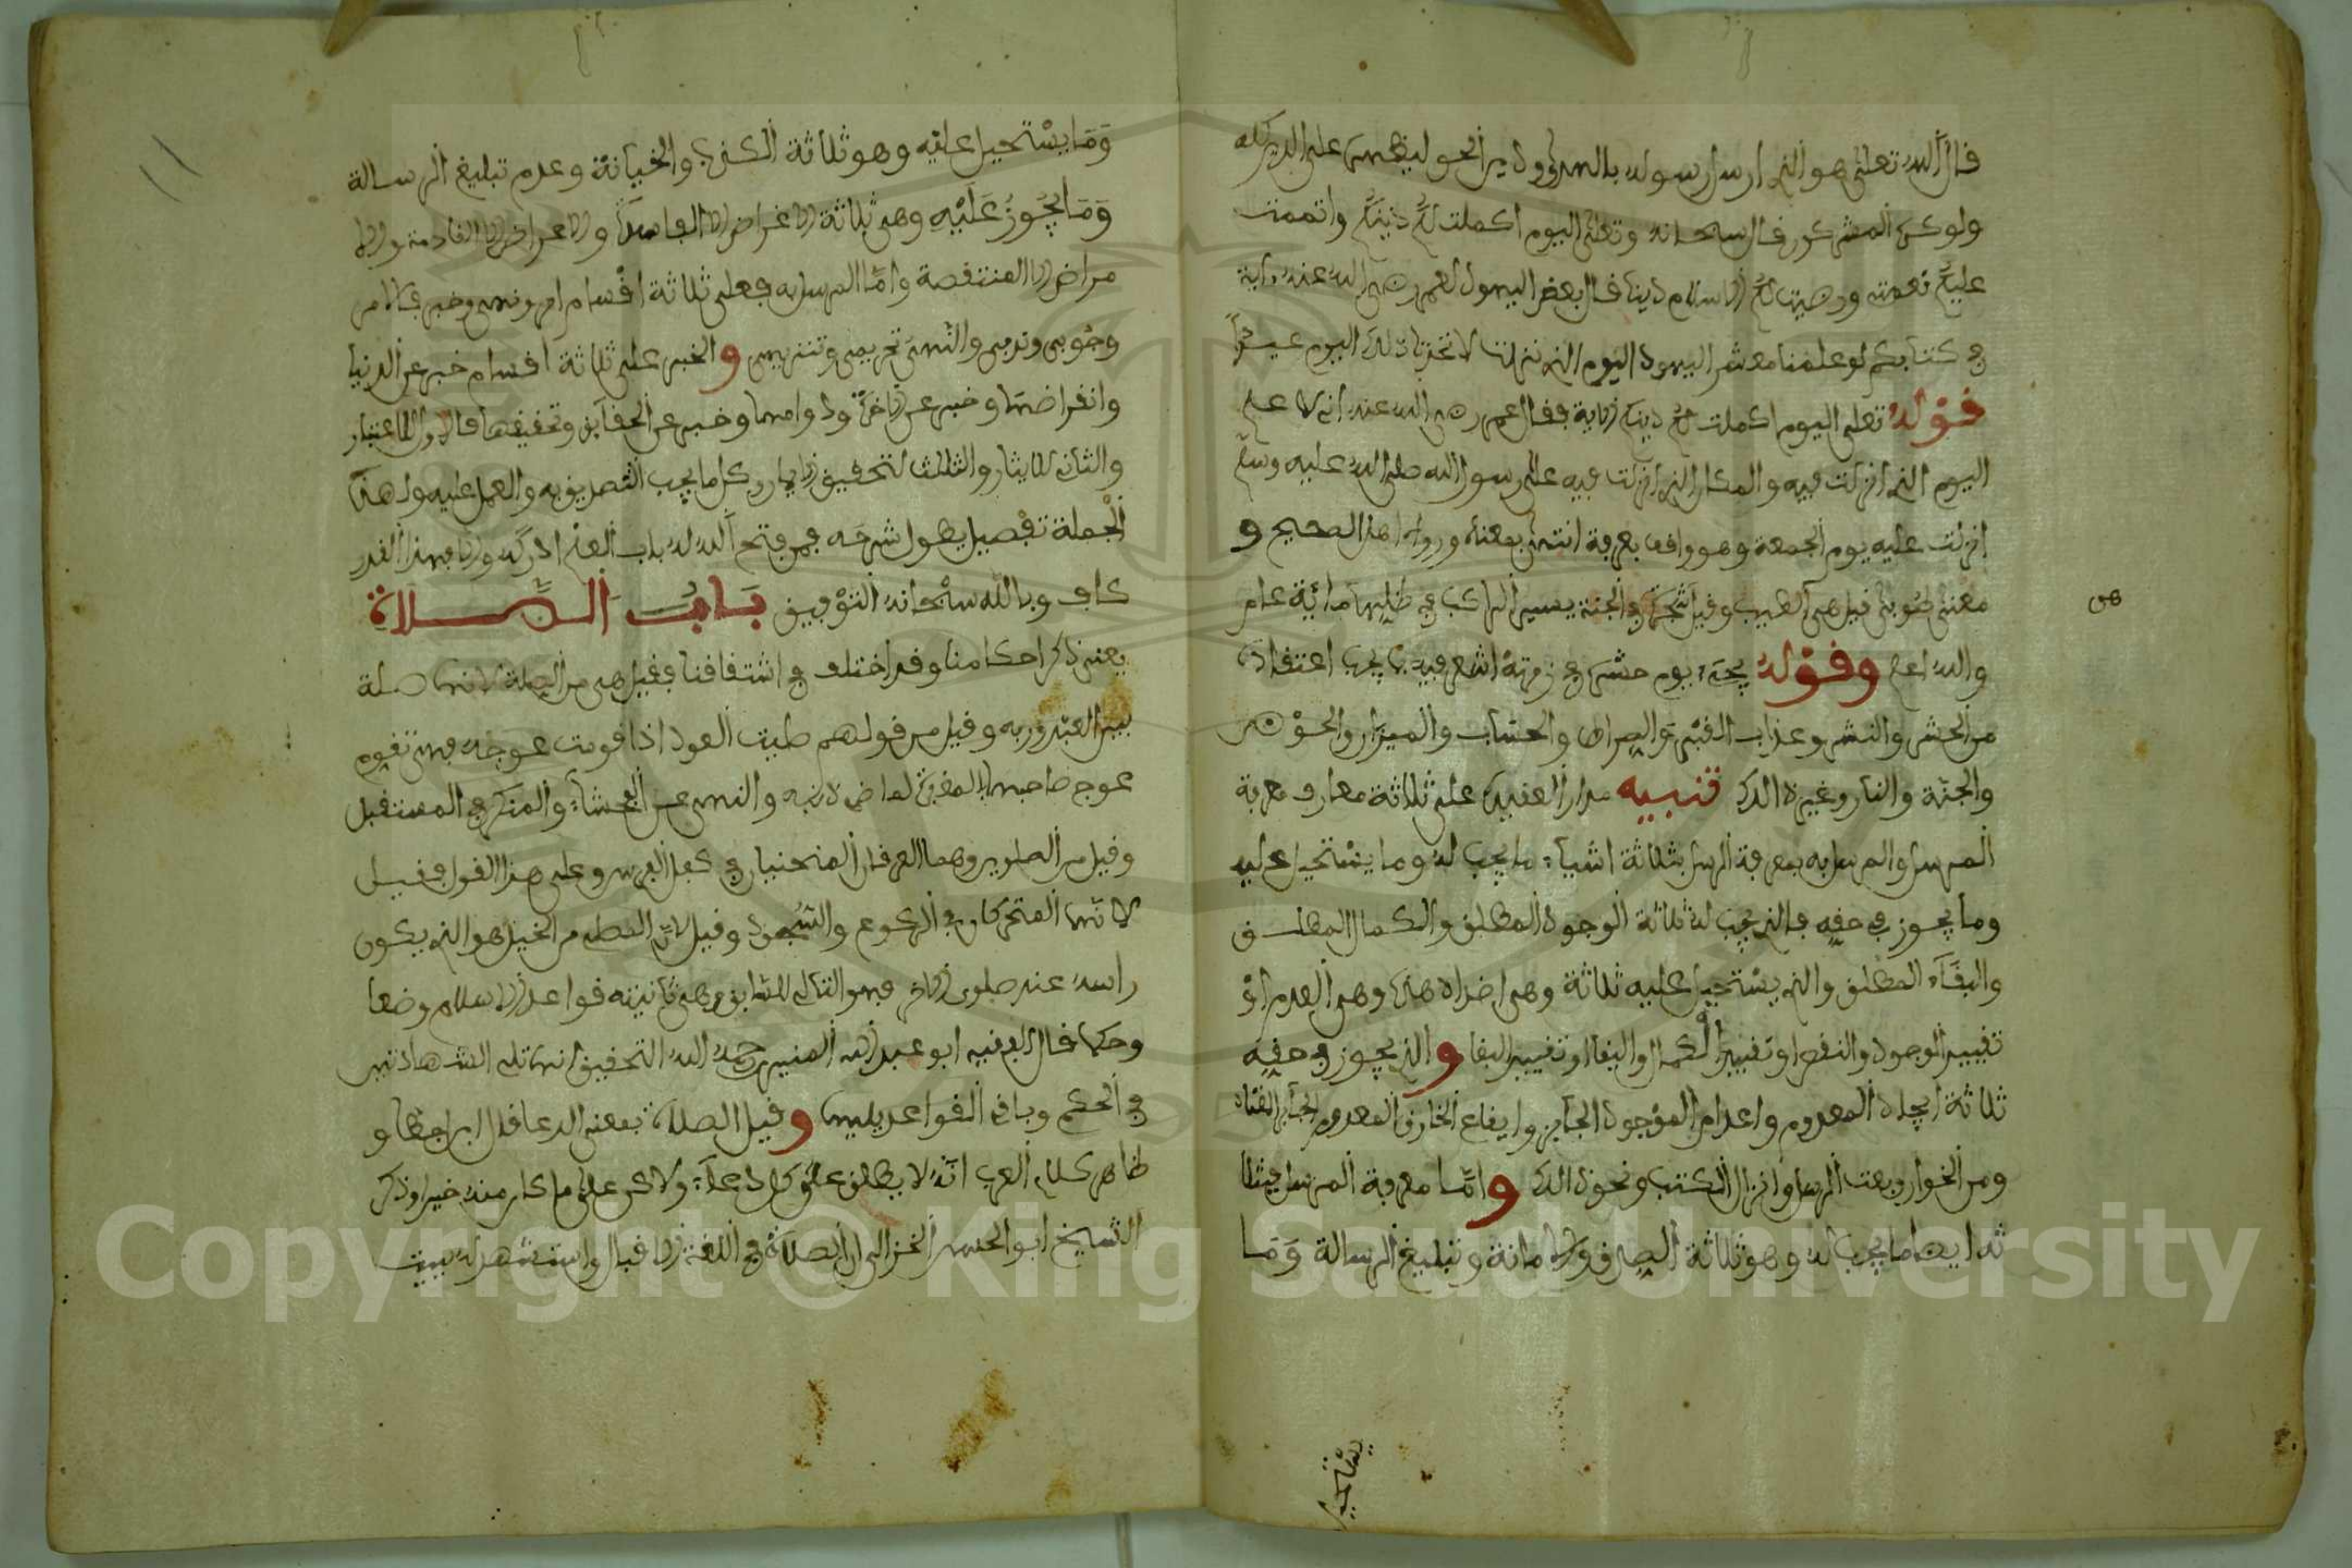 قال الله تعلى هو الذي ارسل رسوله بالهدى ودين الحق ليظهره على الدين كله
ولو كره المشركون قال سبحانه وتعلى اليوم اكملت لكم دينكم واتممت
عليكم نعمتي ورضيت لكم الاسلام دينا قال بعض اليهود لعمر رضي الله عنه ءاية
في كتابكم لو علينا معشر اليهود اليوم الذي نزلت لاتخذنا ذلك اليوم عيدا
قوله تعلى اليوم اكملت لكم دينكم الاية فقال عمر رضي الله عنه اني لاعلم
اليوم الذي انزلت فيه والمكان الذي انزلت فيه على رسول الله صلى الله عليه وسلم
انزلت عليه يوم الجمعة وهو واقف بعرفة انتهى بمعناه ورواه اهل الصحيح و
معنى طوبى قيل هي الطيب وقيل شجرة في الجنة يسير الراكب في ظلها مائة عام
والله اعلم وقوله يوم حشر في زمرته اشعر فيه بما يجب اعتقاده
من الحشر والنشر وعذاب القبر والصراط والحساب والميزان والحوض
والجنة والنار وغير ذلك تنبيه مدار العقيدة على ثلاثة معارف معرفة
المرسل والمرسل به بمعرفة المرسل بثلاثة اشياء ما يجب له وما يستحيل عليه
وما يجوز في حقه فالذي يجب له ثلاثة الوجود المطلق والكمال المطلق
والبقاء المطلق والذي يستحيل عليه ثلاثة وهي اضداد هذه وهي العدم او
تقييد الوجود والنقص او تقييد الكمال والبقا او تقييد البقا والذي يجوز في حقه
ثلاثة ايجاد المعدوم واعدام الموجود الجايز وايقاع الخارق المعدوم
ومن الخوارق بعث الرسل وانزال الكتب ونحو ذلك واما معرفة المرسل فبثلا
ثة ايضا ما يجب له وهو ثلاثة الصدق والامانة وتبليغ الرسالة وَمَا
يستحيل
وَمَا يستحيل عليه وهو ثلاثة الكذب والخيانة وعدم تبليغ الرسالة
وَمَا يجُوزُ عَلَيْهِ وهي ثلاثة الاغراض الفاسدة والاعراض القادمة والا
مراض المنتقصة واما المرسل به فعلى ثلاثة اقسام امر ونهي وخبر فالامر
وجوبي وندبي والنهي تحريمي وتنزيهي والخبر على ثلاثة اقسام خبر عن الدنيا
وانقراضها وخبر عن الاخرة ودوامها وخبر عن الحقايق وتحقيقها فالاول للاعتبار
والثاني للايثار والثالث لتحقيق الايمان وكل ما يجب التصديق به والعمل عليه ولهذه
الجملة تفصيل يطول شرحه فمن فتح الله له باب العلم ادركه والا فهذا القدر
كاف وبالله سبحانه التوفيق بَابُ الصَّلاة
يعني ذكر احكامنا وقد اختلف في اشتقاقنا فقيل هي من الصلة لانها صلة
بين العبد وربه وقيل من قولهم صليت العود اذا قومت عوجه فهي تقوم
عوج صاحبها بالمغفرة لما مضى ذنبه والنهي عن الفحشاء والمنكر في المستقبل
وقيل من الصلوين وهما العرقان المنحنيان في كفل الفرس وعلى هذا القول فقيل
لانها المتحركان في الركوع والسجود وقيل لان المصلي من الخيل هو الذي يكون
راسه عند صلوي الاخر فهو التالي للسابق وهي ثانية قواعد الاسلام وضعا
وحكما قال الفقيه ابو عبد الله المنير رحمه الله التحقيق انها تلي الشهادتين
في الحكم وباقي القواعد يليها وقيل الصلاة بمعنى الدعا قال
ظاهر كلام العرب انه لا يطلق على كل دعاء ولاكن على ما كان منه خيرا وذكر
الشيخ ابو الحسن الغزالي ان الصلاة في اللغة الاقبال واستشهد له ببيت